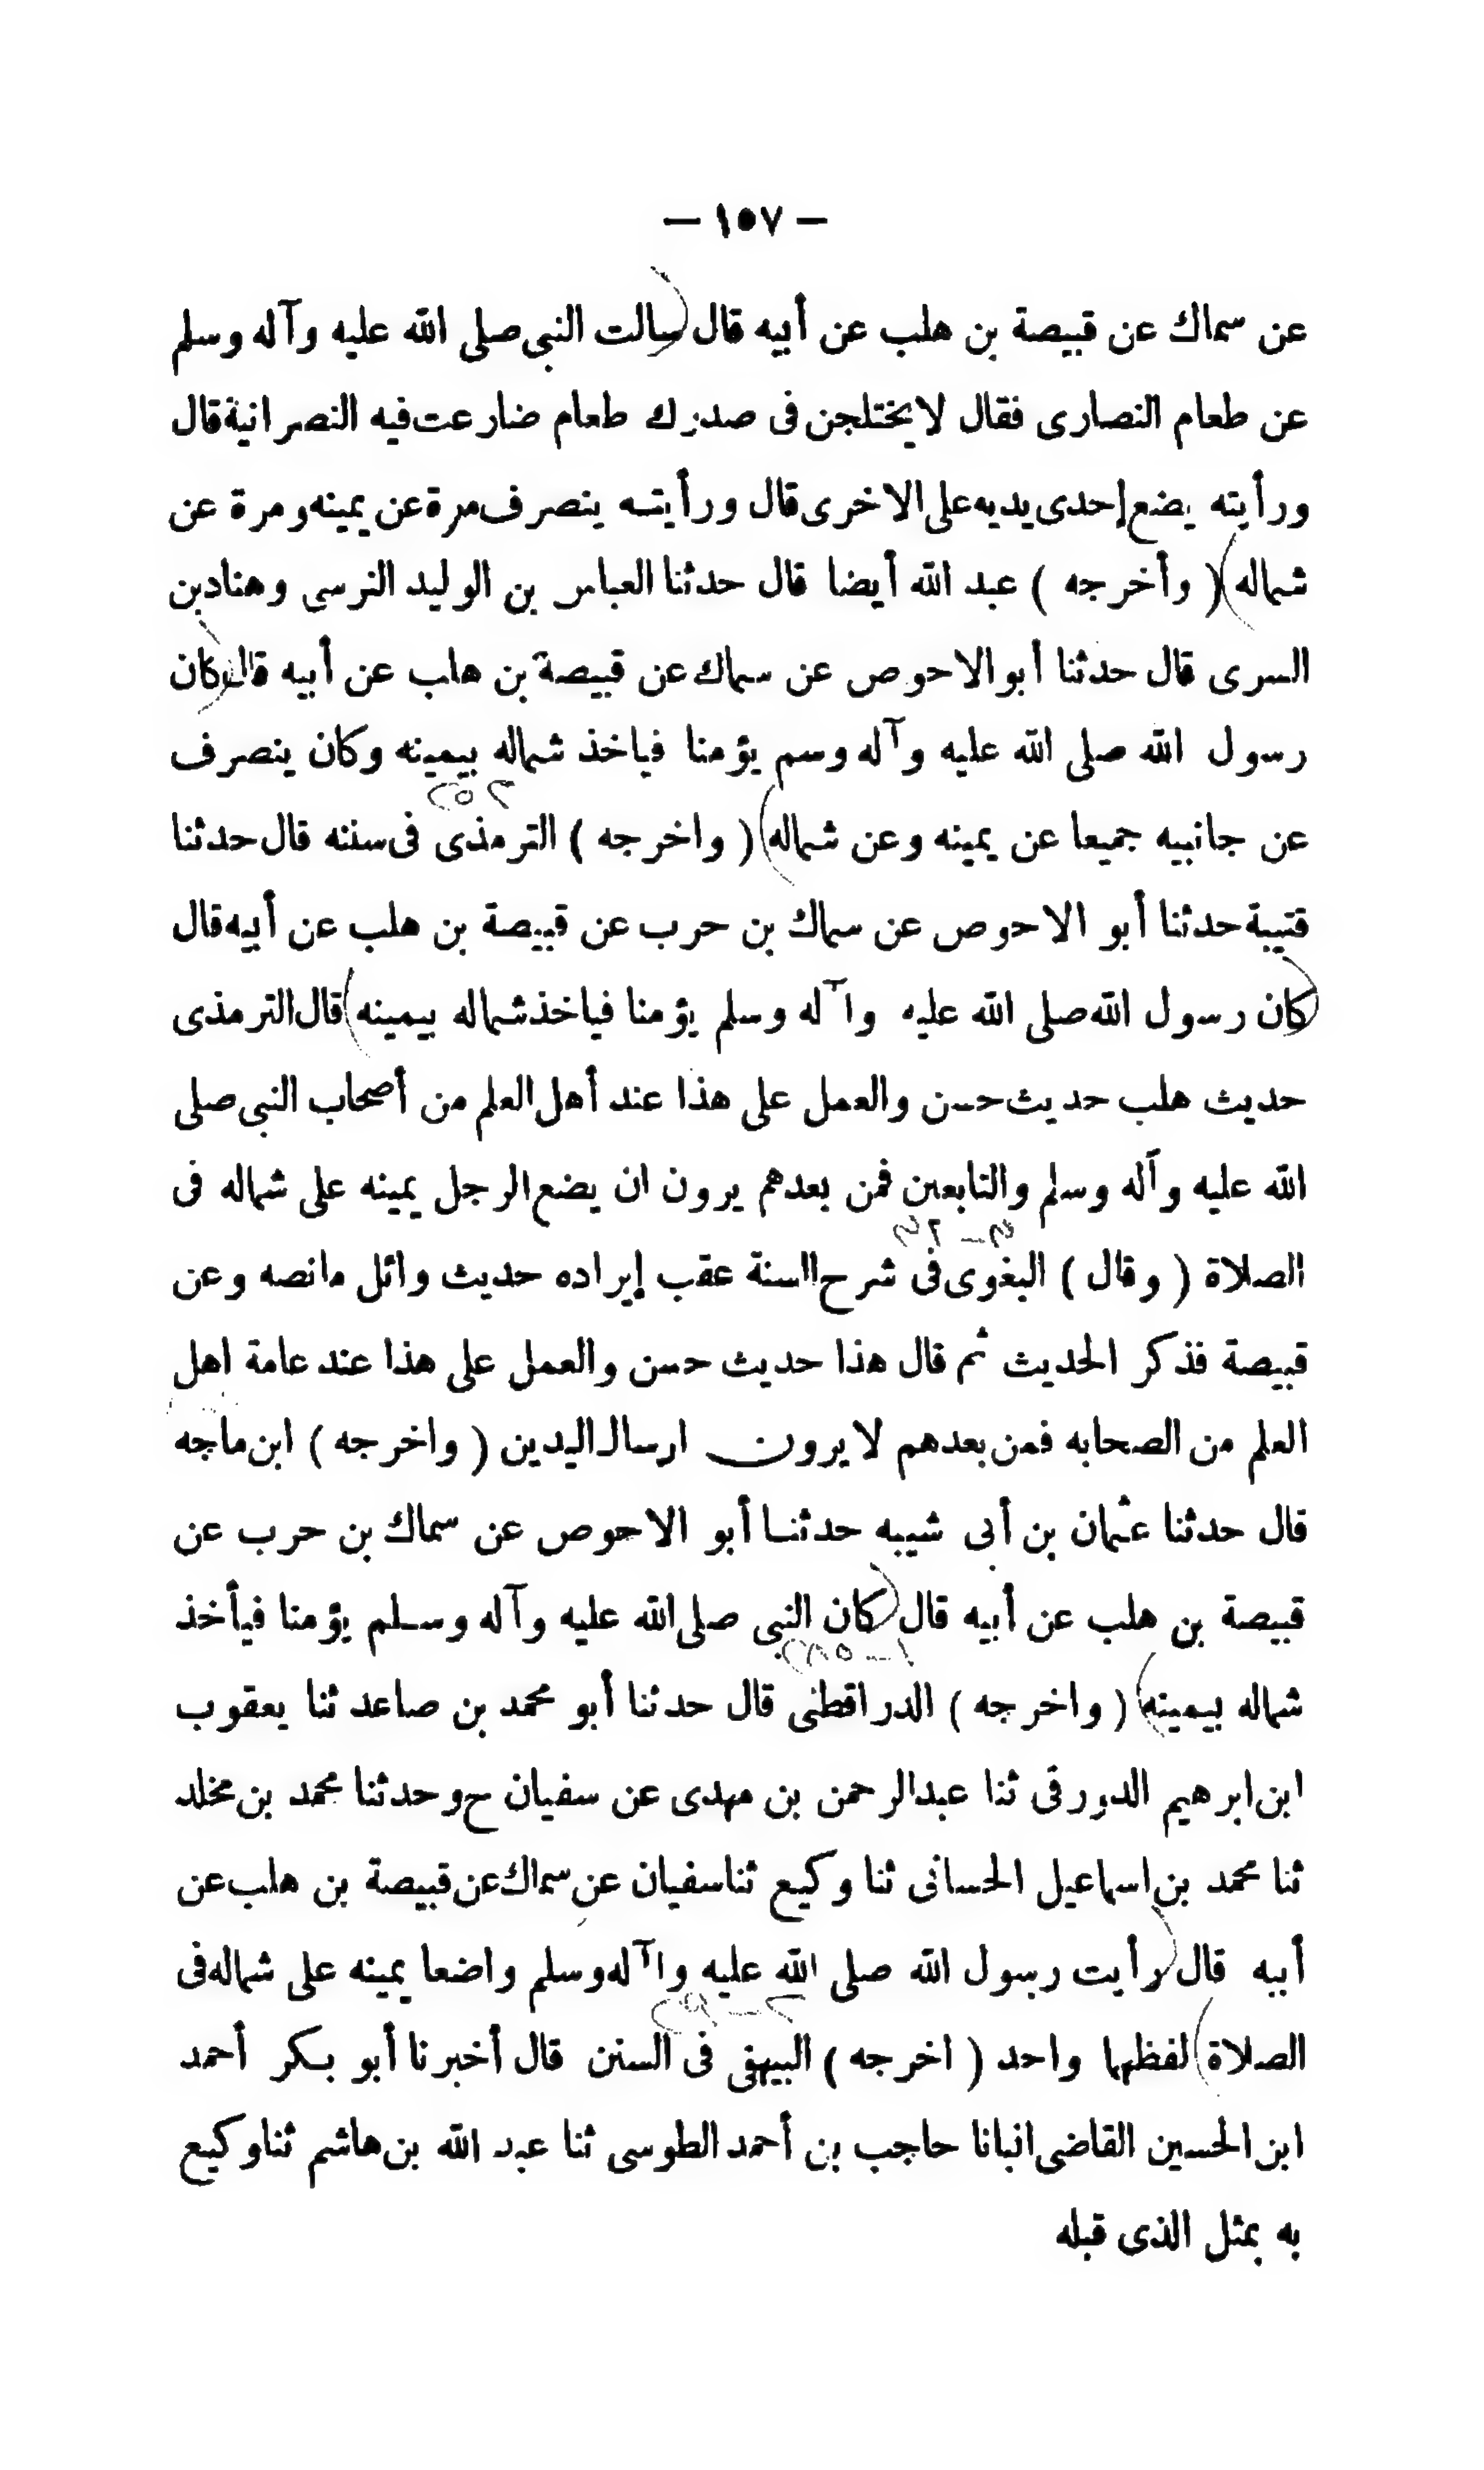 — ١٥٧ —
عن سماك عن قبيصة بن هلب عن أبيه قال سالت النبى صلى الله عليه وآله وسلم
عن طعام النصارى فقال لا يختلجن فى صدرك طعام ضارعت فيه النصرانية قال
ورأيته يضع إحدى يديه على الاخرى قال ورأيته ينصرف مرة عن يمينه ومرة عن
شماله ( وأخرجه ) عبد الله أيضا قال حدثنا العباس بن الوليد النرسى وهناد بن
السرى قال حدثنا أبو الاحوص عن سماك عن قبيصة بن هلب عن أبيه قال كان
رسول الله صلى الله عليه وآله وسم يؤمنا فياخذ شماله بيمينه وكان ينصرف
٢٥٢
عن جانبيه جميعا عن يمينه وعن شماله ( واخرجه ) الترمذى فى سننه قال حدثنا
قتيبة حدثنا أبو الاحوص عن سماك بن حرب عن قبيصة بن هلب عن أبيه قال
كان رسول الله صلى الله عليه وآله وسلم يؤمنا فياخذ شماله بيمينه قال الترمذى
حديث هلب حديث حسن والعمل على هذا عند أهل العلم من أصحاب النبى صلى
الله عليه وآله وسلم والتابعين فمن بعدهم يرون ان يضع الرجل يمينه على شماله فى
الصلاة ( وقال ) البغوى فى شرح السنة عقب إيراده حديث وائل مانصه وعن
قبيصة فذكر الحديث ثم قال هذا حديث حسن والعمل على هذا عند عامة اهل
العلم من الصحابه فمن بعدهم لا يرون ارسال اليدين ( واخرجه ) ابن ماجه
قال حدثنا عثمان بن أبى شيبه حدثنا أبو الاحوص عن سماك بن حرب عن
قبيصة بن هلب عن أبيه قال كان النبى صلى الله عليه وآله وسلم يؤمنا فيأخذ
شماله بيمينه ( واخرجه ) الدراقطنى قال حدثنا أبو محمد بن صاعد ثنا يعقوب
ابن ابرهيم الدورقى ثنا عبدالرحمن بن مهدى عن سفيان ح وحدثنا محمد بن مخلد
ثنا محمد بن اسماعيل الحسانى ثنا وكيع ثنا سفيان عن سماك عن قبيصة بن هلب عن
أبيه قال رأيت رسول الله صلى الله عليه وآله وسلم واضعا يمينه على شماله فى
الصلاة لفظهما واحد ( اخرجه ) البيهقى فى السنن قال أخبرنا أبو بكر أحمد
ابن الحسين القاضى انبانا حاجب بن أحمد الطوسى ثنا عبد الله بن هاشم ثنا وكيع
به بمثل الذى قبله